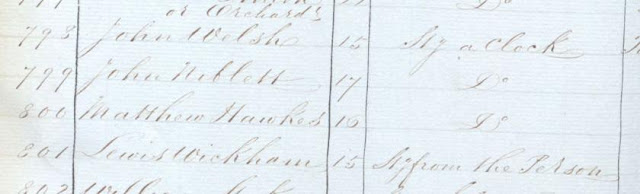 or Orchard
798 John Welsh 15 Stg a Clock
799 John Niblett 17 Do
800 Matthew Hawkes 16 Do
801 Lewis Wickham 15 Stg from the Person
802